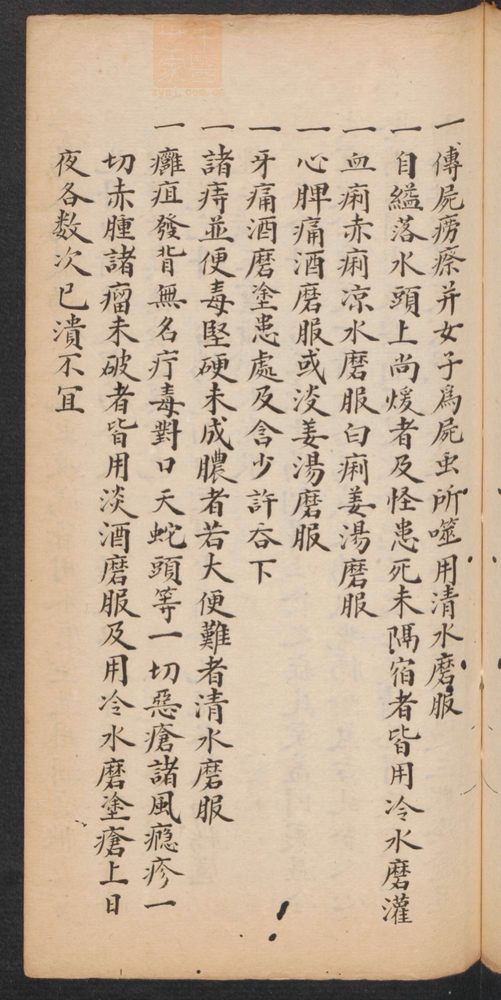 一傳屍癆瘵并女子為屍虫所噬用清水磨服
一自縊落水頭上尚煖者及怪患死未隔宿者皆用冷水磨灌
一血痢赤痢凉水磨服白痢姜湯磨服
一心脾痛酒磨服或淡姜湯磨服
一牙痛酒磨塗患處及含少許吞下
一諸痔並便毒堅硬未成膿者若大便難者清水磨服
一癰疽發背無名疔毒對口天蛇頭等一切惡瘡諸風癮疹一
切赤腫諸瘤未破者皆用淡酒磨服及用冷水磨塗瘡上日
夜各数次已潰不宜